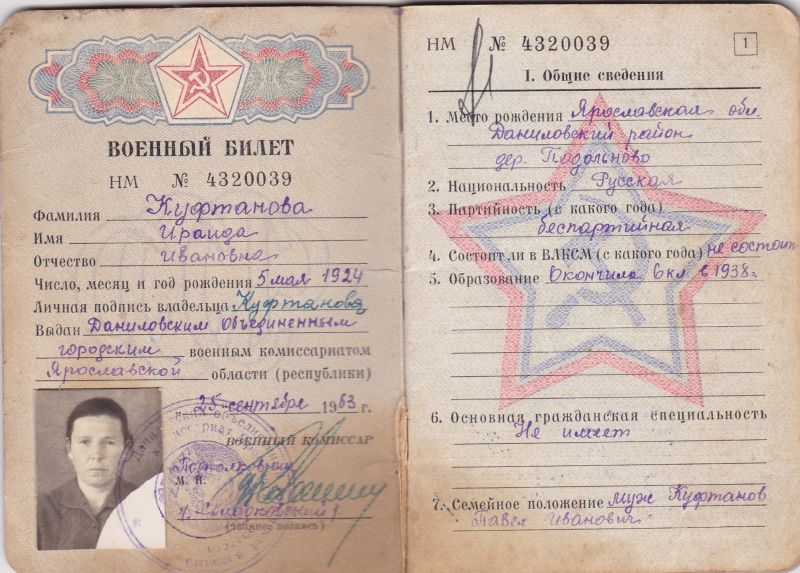 ВОЕННЫЙ БИЛЕТ
НМ № 4320039
Фамилия Куфтанова
Имя Ираида
Отчество Ивановна
Число, месяц и год рождения 5 мая 1924
Личная подпись владельца Куфтанова
Выдан Даниловским Объединенным
городским военным комиссариатом
Ярославской области (республики)
25 сентября 1963 г.
ВОЕННЫЙ КОМИССАР
Подполковник
М. П.
(звание подпись)
НМ № 4320039
1
I. Общие сведения
1. Место рождения Ярославская обл.
Даниловский район
дер. Подольново
2. Национальность Русская
3. Партийность (с какого года)
беспартийная
4. Состоит ли в ВЛКСМ (с какого года) не состоит
5. Образование Окончила 6 кл. в 1938 г.
6. Основная гражданская специальность
Не имеет
7. Семейное положение муж Куфтанов
Павел Иванович